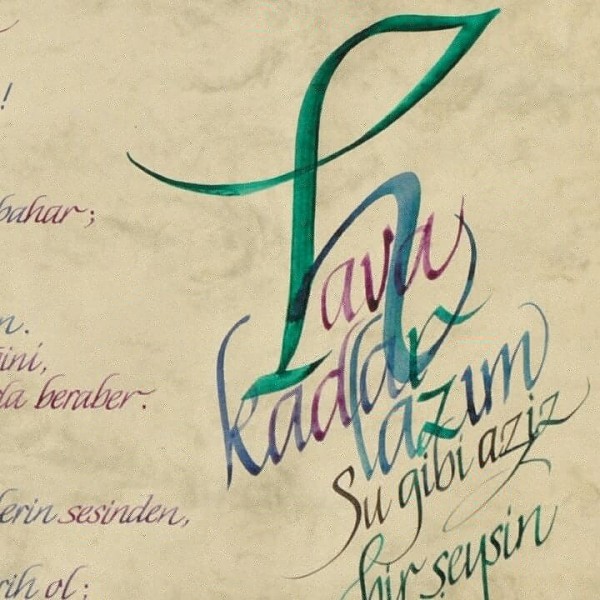 !
bahar;
da beraber.
lerin sesinden,
rih ol;
hava
kadar
lazım
Su gibi aziz
bir şeysin